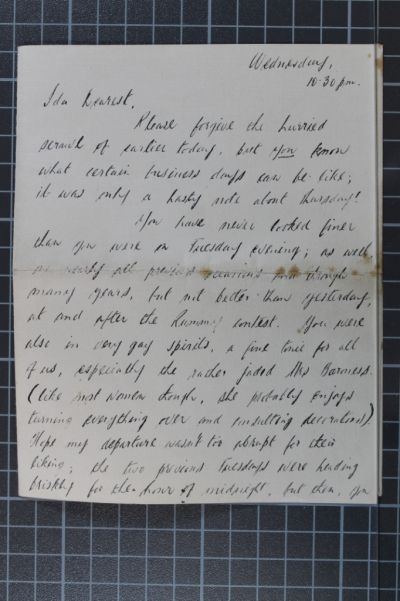 Wednesday,
10.30 pm.
Ida Dearest,
Please forgive the hurried
scrawl of earlier today, but you know
what certain business days can be like;
it was only a hasty note about Thursday!
You have never looked finer
than you were on Tuesday evening; as well
on nearly all previous occasions through
many years, but not better than yesterday,
at and after the Rummy contest. You were
also in very gay spirits, a fine tonic for all
of us, especially the rather jaded Mrs Baroness.
(like most women though, she probably enjoys
turning everything over and consulting decorations!)
Hope my departure wasn't too abrupt for their
liking; the two previous Tuesdays were heading
briskly for the hour of midnight, but then, you